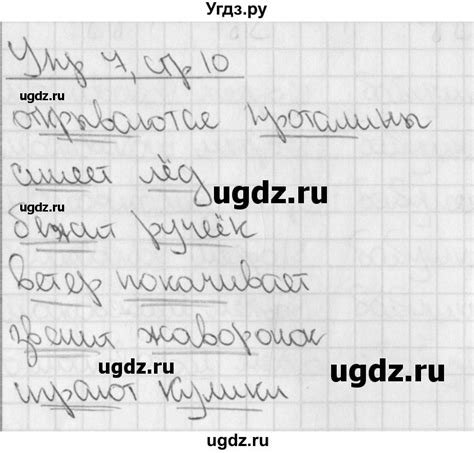 Угдз.ру
Упр 7, стр 10
ugdz.ru
открываются проталины
ugdz.ru
синеет лёд
ugdz.ru
бежит ручеёк
ugdz.ru
ветер покачивает
звенит жаворонок
ugdz.ru
ugdz.ru
играют кулики
ugdz.ru
Угдз.ру